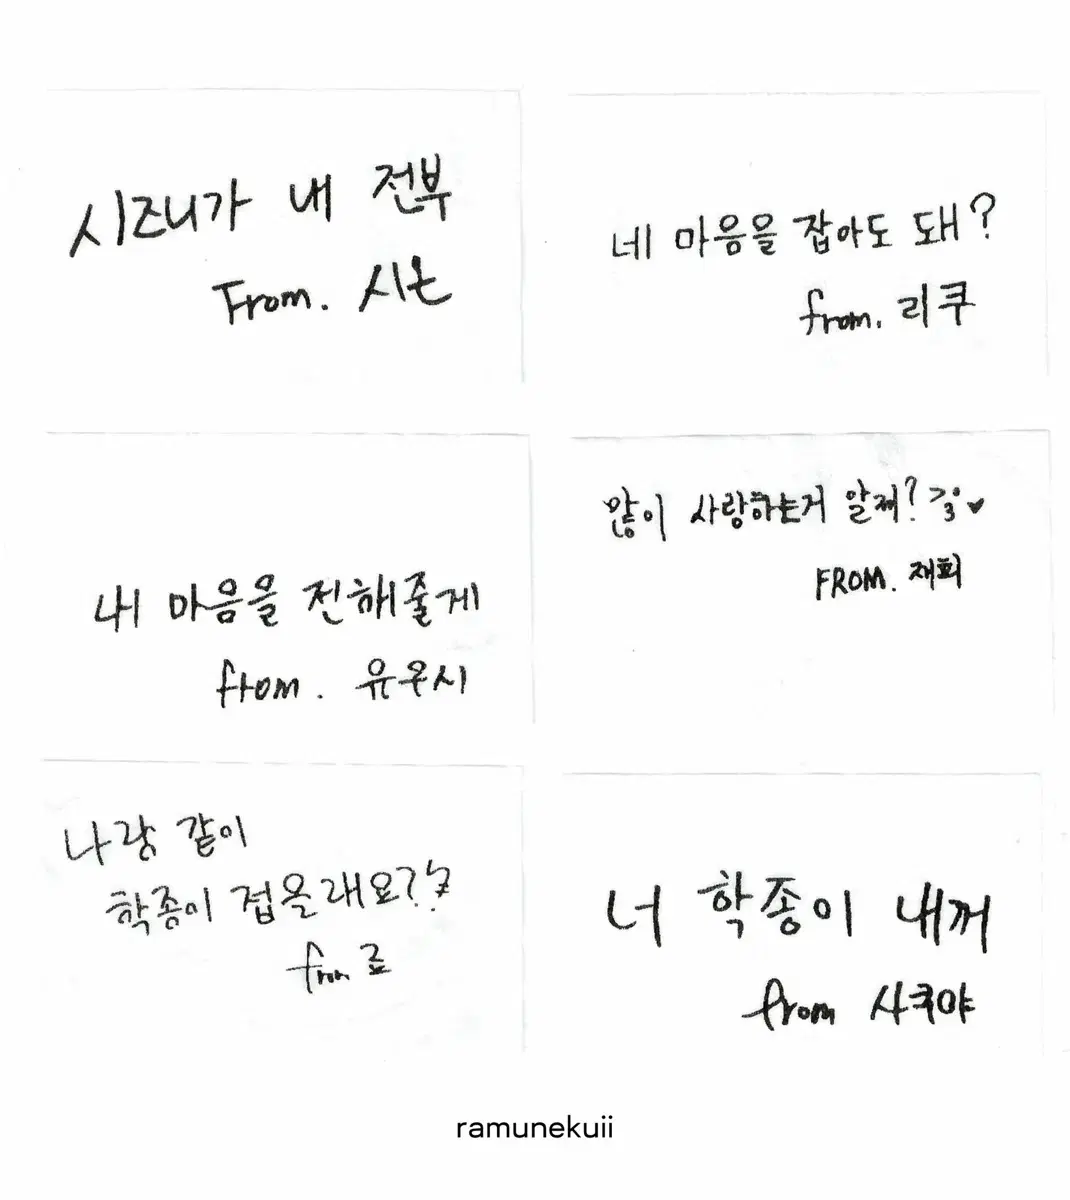 시즈니가 내 전부
From. 시온
네 마음을 잡아도 돼?
from. 리쿠
내 마음을 전해줄게
from. 유우시
많이 사랑하는거 알제? >3•♥
FROM. 재희
나랑 같이
학종이 접을래요?
from 료
너 학종이 내꺼
from 사쿠야
ramunekuii